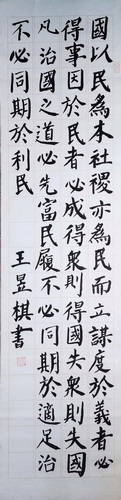 國以民為本社稷亦為民而立謀度於義者必
得事因於民者必成得眾則得國失眾則失國
凡治國之道必先富民履不必同期於適足治
不必同期於利民
王昱棋書